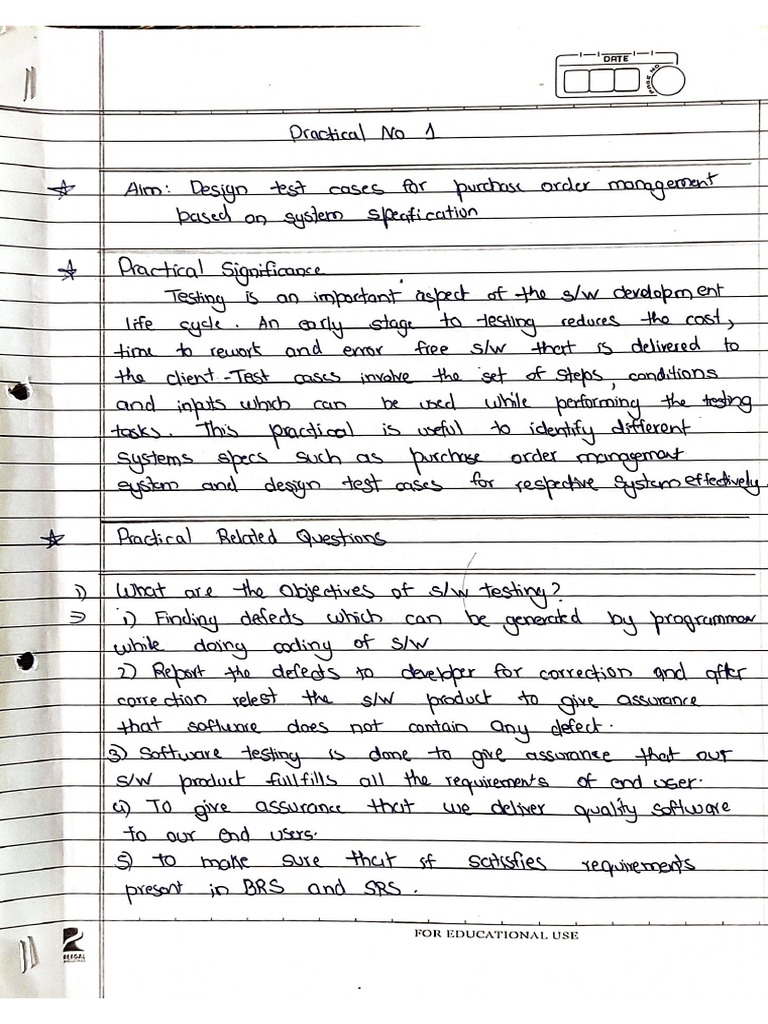 DATE
PAGE NO
Practical No 1
Aim: Design test cases for purchase order management
based on system specification
Practical Significance
Testing is an important aspect of the s/w development
life cycle. An early stage to testing reduces the cost,
time to rework and error free s/w that is delivered to
the client-Test cases involve the set of steps, conditions
and inputs which can be used while performing the testing
tasks. This practical is useful to identify different
systems specs such as purchase order management
system and design test cases for respective system effectively.
Practical Related Questions
1) What are the objectives of s/w testing?
⇒ 1) Finding defects which can be generated by programmer
while doing coding of s/w
2) Report the defects to developer for correction and after
correction retest the s/w product to give assurance
that software does not contain any defect.
3) Software testing is done to give assurance that our
s/w product fullfills all the requirements of end user.
4) To give assurance that we deliver quality software
to our end users.
5) to make sure that it satisfies requirements
present in BRS and SRS.
FOR EDUCATIONAL USE